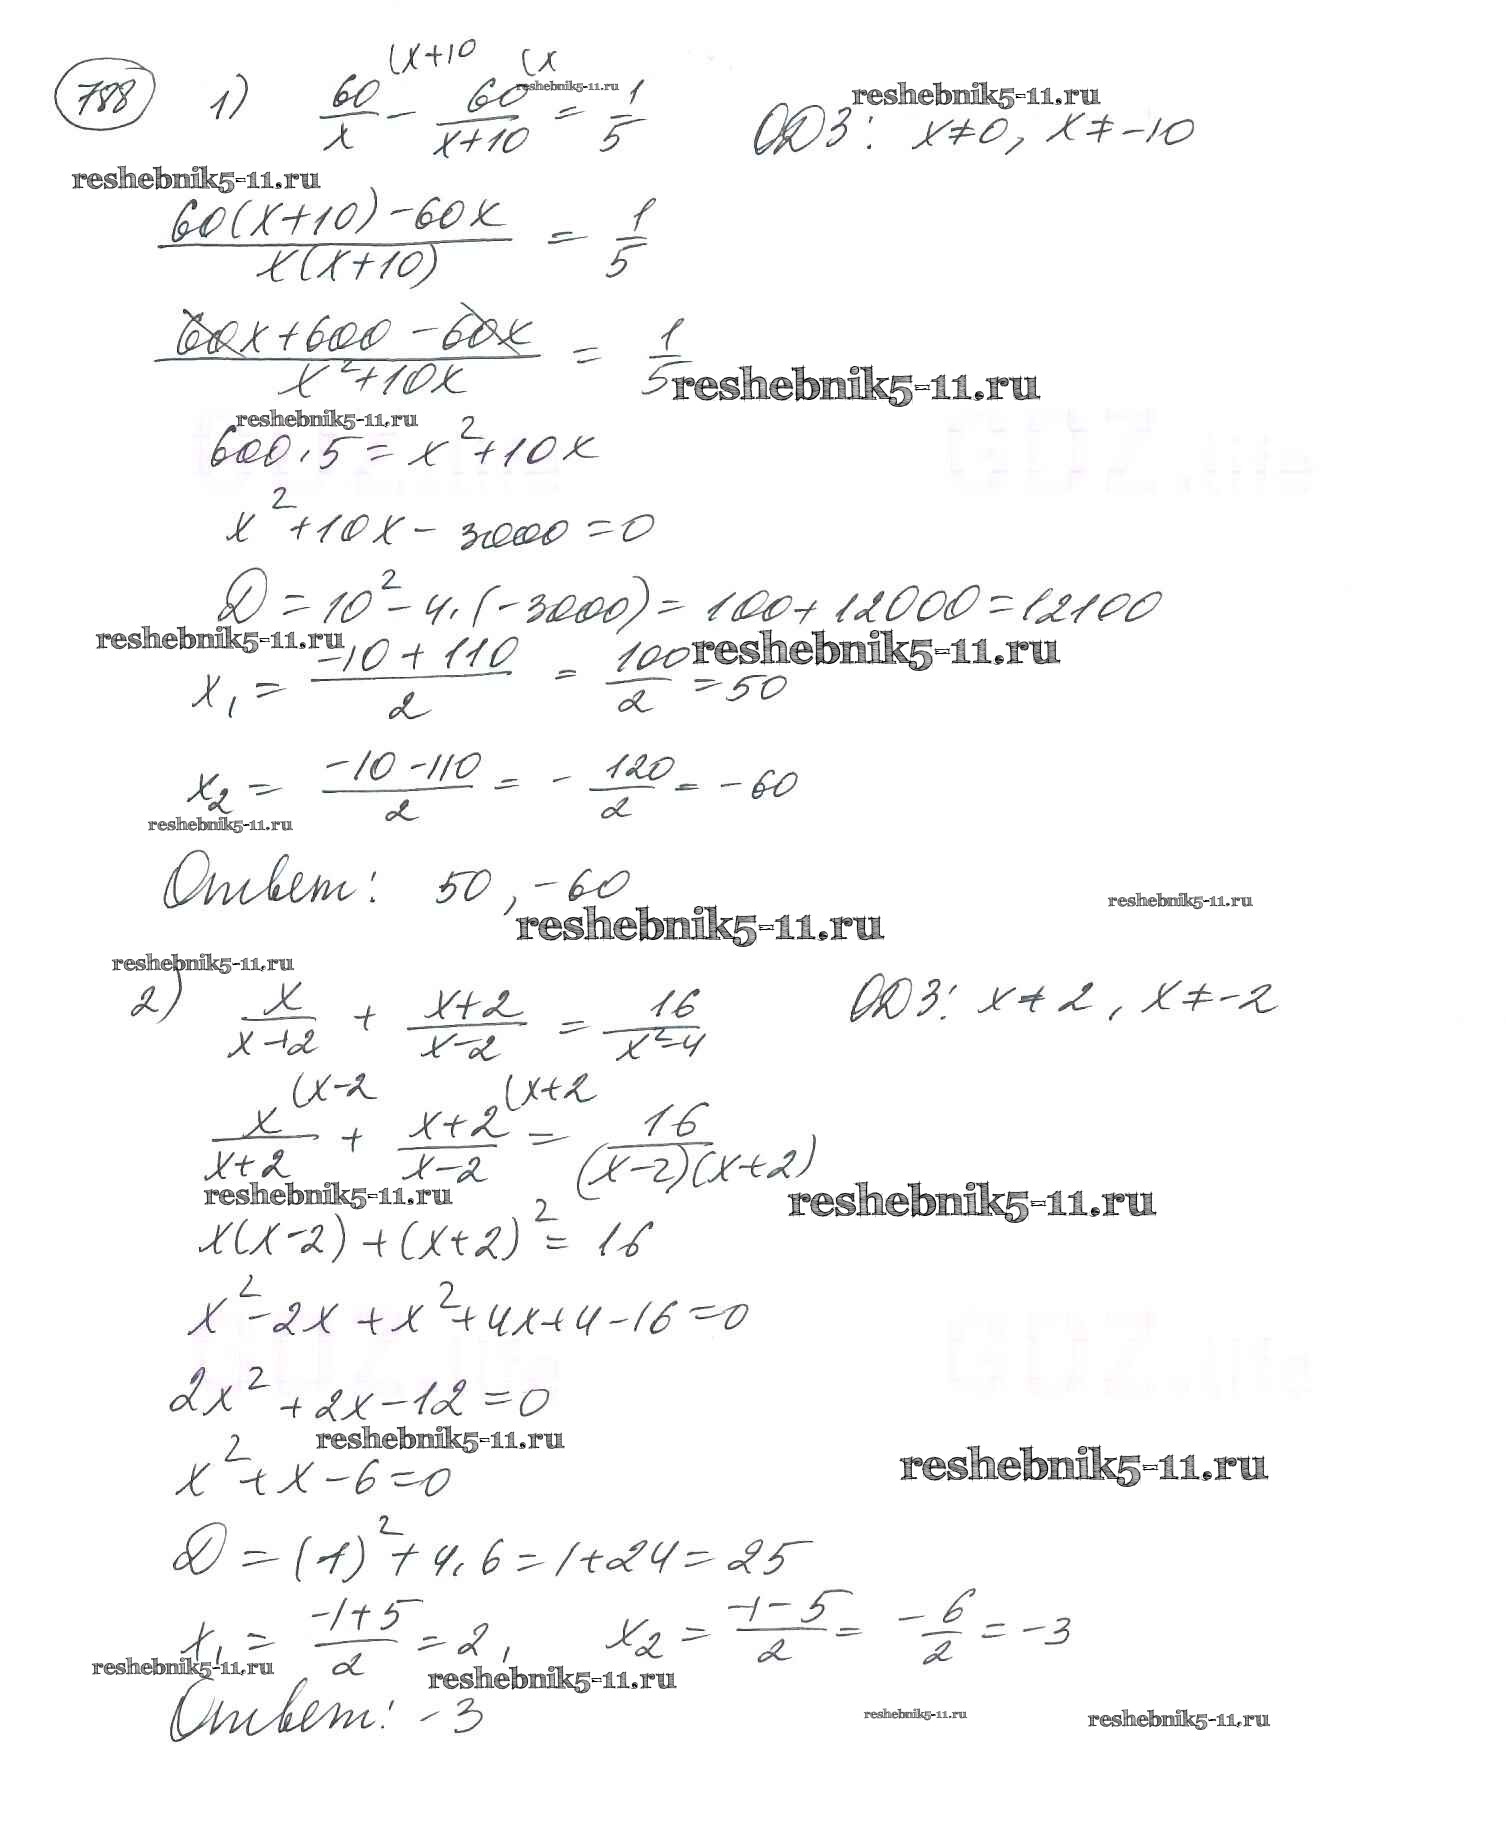 788 1) 60/x (x+10 - 60/(x+10) (x = 1/5 ОДЗ: x≠0, x≠-10
reshebnik5-11.ru
reshebnik5-11.ru
reshebnik5-11.ru
(60(x+10)-60x)/(x(x+10)) = 1/5
(60x+600-60x)/(x²+10x) = 1/5
reshebnik5-11.ru
reshebnik5-11.ru
600·5=x²+10x
x²+10x-3000=0
D=10²-4·(-3000)=100+12000=12100
reshebnik5-11.ru
reshebnik5-11.ru
x₁=(-10+110)/2=100/2=50
x₂=(-10-110)/2=-120/2=-60
reshebnik5-11.ru
Ответ: 50, -60
reshebnik5-11.ru
reshebnik5-11.ru
reshebnik5-11.ru
2) x/(x+2) + (x+2)/(x-2) = 16/(x²-4) ОДЗ: x≠2, x≠-2
x/(x+2) (x-2 + (x+2)/(x-2) (x+2 = 16/((x-2)(x+2))
reshebnik5-11.ru
reshebnik5-11.ru
x(x-2)+(x+2)²=16
x²-2x+x²+4x+4-16=0
2x²+2x-12=0
reshebnik5-11.ru
reshebnik5-11.ru
x²+x-6=0
D=(1)²+4·6=1+24=25
x₁=(-1+5)/2=2, x₂=(-1-5)/2=-6/2=-3
reshebnik5-11.ru
reshebnik5-11.ru
Ответ: -3
reshebnik5-11.ru
reshebnik5-11.ru